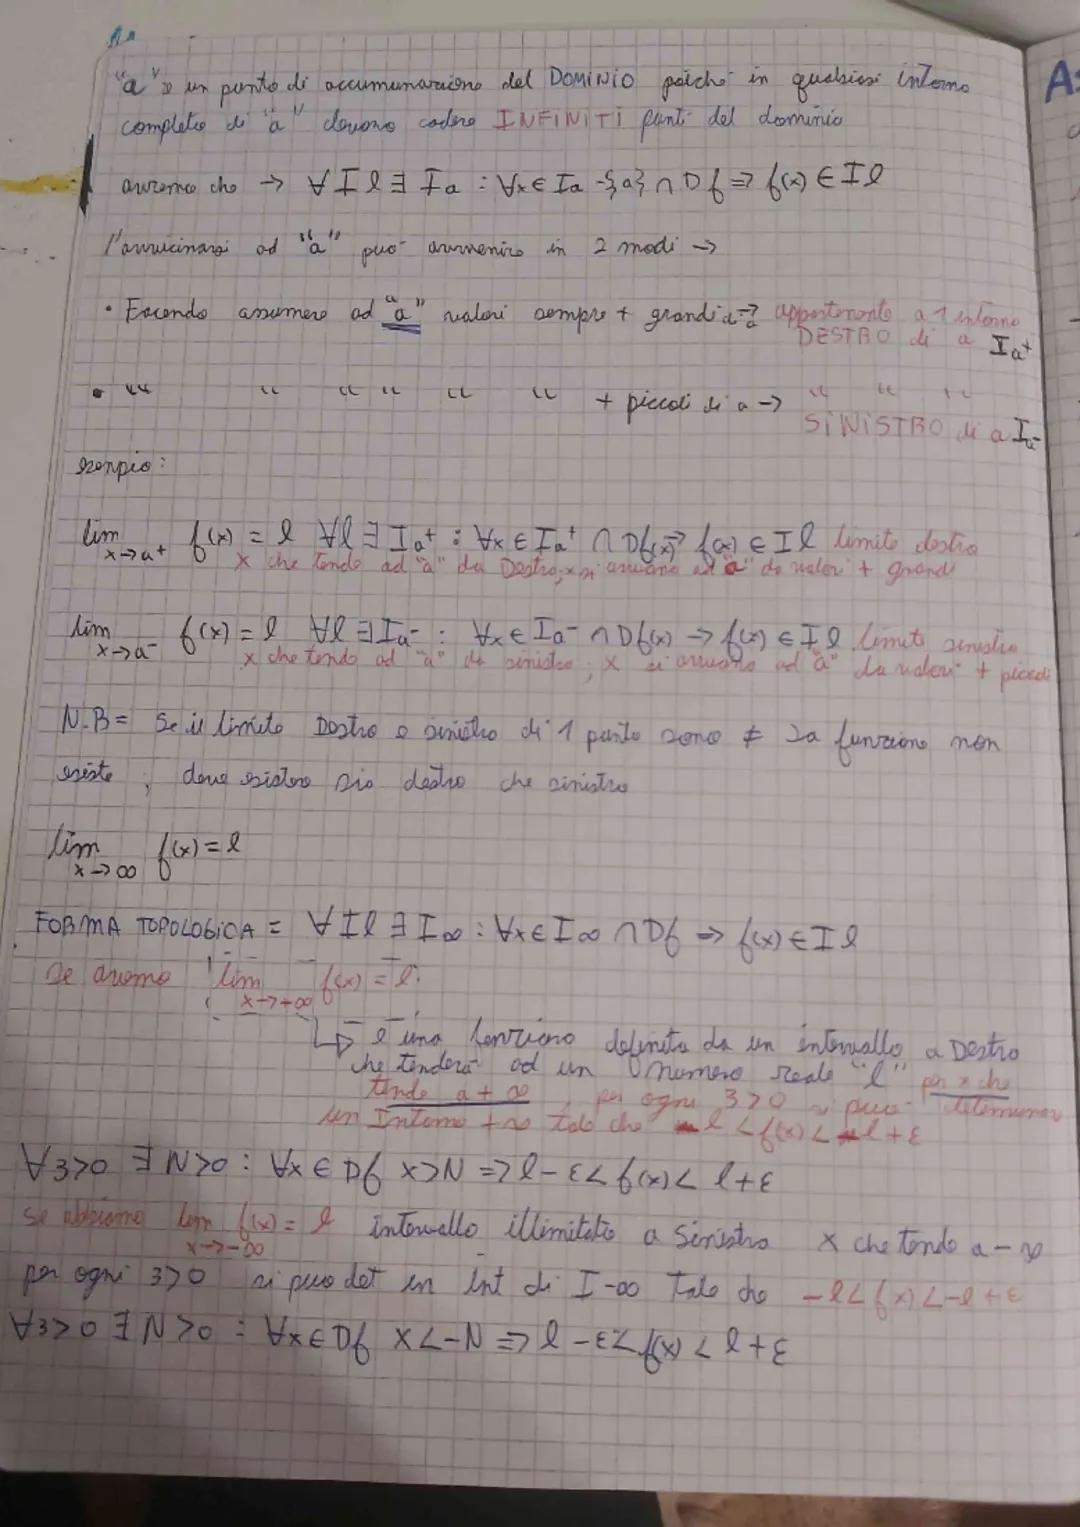 "a" è un punto di accumunazione del DOMINIO poiché in qualsiasi intorno
completo di "a" devono cadere INFINITI punti del dominio
avremo che → ∀ I l ∃ I a : ∀x ∈ I a -{a} ∩ D f ⇒ f(x) ∈ I l
l'avvicinarsi ad "a" può avvenire in 2 modi →
• Facendo assumere ad "a" valori sempre + grandi di a → appartenente a 1 intorno
DESTRO di a Ia⁺
• " " " " " " + piccoli di a → " " "
SINISTRO di a Ia⁻
esempio:
lim f(x) = l ∀l ∃ Ia⁺ : ∀x ∈ Ia⁺ ∩ Df(x) ⇒ f(x) ∈ I l limite destro
x→a⁺
x che tende ad "a" da Destro; x si avvicina ad "a" da valori + grandi
lim f(x) = l ∀l ∃ Ia⁻ : ∀x ∈ Ia⁻ ∩ Df(x) → f(x) ∈ I l limite sinistro
x→a⁻
x che tende ad "a" da sinistra; x si avvicina ad "a" da valori + piccoli
N.B = Se il limite Destro e sinistro di 1 punto sono ≠ la funzione non
esiste ; deve esistere sia destro che sinistro
lim f(x) = l
x→∞
FORMA TOPOLOGICA = ∀ I l ∃ I ∞ : ∀x ∈ I ∞ ∩ Df ⇒ f(x) ∈ I l
Se avremo lim f(x) = l
x→+∞
↳ è una funzione definita da un intervallo a Destro
che tenderà ad un numero reale "l" per x che
tende a + ∞, per ogni Ɛ>0 si può determinare
un Intorno +∞ tale che l < f(x) < l + ε
∀ Ɛ>0 ∃ N>0 : ∀x ∈ Df x>N ⇒ l - ε < f(x) < l + ε
Se abbiamo lim f(x) = l intervallo illimitato a Sinistra x che tende a - ∞
x→-∞
per ogni Ɛ>0 si può det un int di I -∞ Tale che -l < f(x) < -l + ε
∀ Ɛ>0 ∃ N>0 : ∀x ∈ Df x < -N ⇒ l - ε < f(x) < l + ε